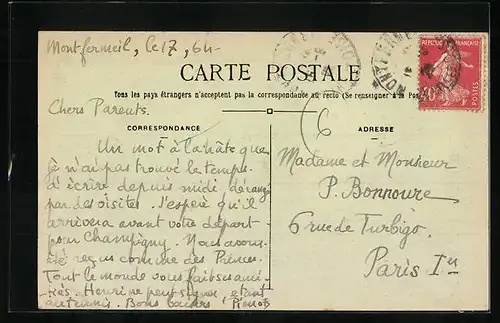 Montfermeil, le 17, 6h-
CARTE POSTALE
Tous les pays étrangers n'acceptent pas la correspondance au recto (Se renseigner à la Poste)
Chers Parents.
CORRESPONDANCE
ADRESSE
6
Un mot à la hâte que
je n'ai pas trouvé le temps
d'écrire depuis midi dérangé
par des visites. J'espère qu'il
arrivera avant votre départ
pour Champigny. Nous avons
été reçus comme des Princes.
Tout le monde vous fait ses ami-
tiés. Henri ne peut signer, étant
au tennis. Bons baisers
Madame et Monsieur
P. Bonnoure
6 rue de Turbigo.
Paris Ier
REPUBLIQUE FRANÇAISE